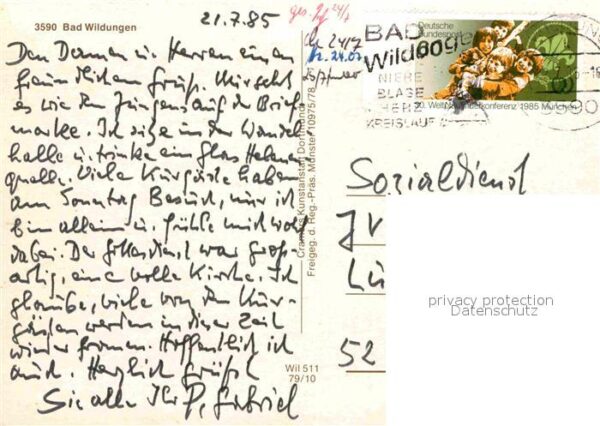 3590 Bad Wildungen
21.7.85
Den Damen u. Herren einen
freundlichen Gruß.
es wie den Jungens auf der Brief-
marke. Ich sitze in der Wandel-
halle u. trinke ein Glas Helenen-
quelle. Viele Kurgäste haben
am Sonntag Besuch, nur ich
bin allein u. fühle mich wohl
dabei. Der Gottesdienst war groß-
artig, eine volle Kirche. Ich
glaube, viele von den Kur-
gästen werden in dieser Zeit
wieder fromm. Hoffentlich ich
auch. Herzlich grüßt
Sie alle Ihr P. Gabriel
Cramers Kunstanstalt Dortmund
Freigeg. d. Reg.-Präs. Münster 10975/78
Wil 511
79/10
24/7
BAD
Wildungen
NIERE
BLASE
HERZ
KREISLAUF
Deutsche
Bundespost
30. Weltpfadfinderkonferenz 1985 München
Sozialdienst
52
privacy protection
Datenschutz